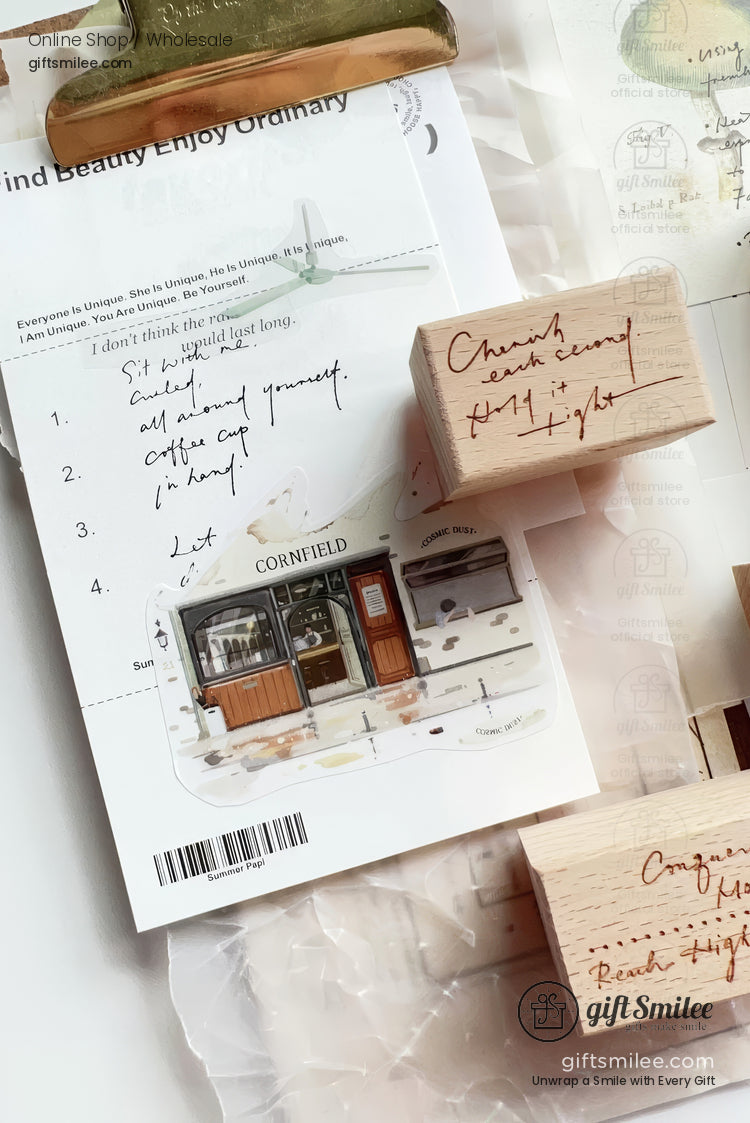 Online Shop / Wholesale
giftsmilee.com
ind Beauty Enjoy Ordinary
Everyone Is Unique. She Is Unique, He Is Unique. It Is Unique,
I Am Unique. You Are Unique. Be Yourself.
I don't think the ra
would last long.
Sit with me.
curled,
1.
all around yourself.
coffee cup
2.
in hand.
3.
Let
4.
CORNFIELD
COSMIC DUST
Sum
COSMIC DUST
Summer Papi
Cherish
each second.
Hold it
tight
using
Fary V.
giftSmilee
Giftsmilee
official store
Conquer
Reach High
giftSmilee
gifts make smile
giftsmilee.com
Unwrap a Smile with Every Gift